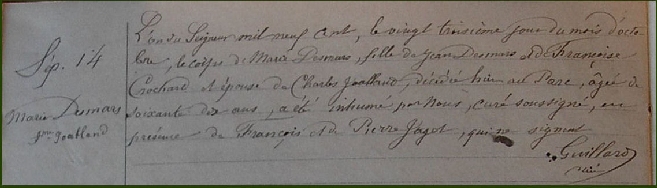 Sép. 14
Marie Desmars
fme Joalland
L'an du Seigneur mil neuf cent, le vingt troisième jour du mois d'octo
bre, le corps de Marie Desmars, fille de Jean Desmars et de Françoise
Crochard et épouse de Charles Joalland, décédée hier au Parc, âgée de
soixante dix ans, a été inhumé par Nous, curé soussigné, en
présence de François et de Pierre Jagot, qui ne signent
Guillard